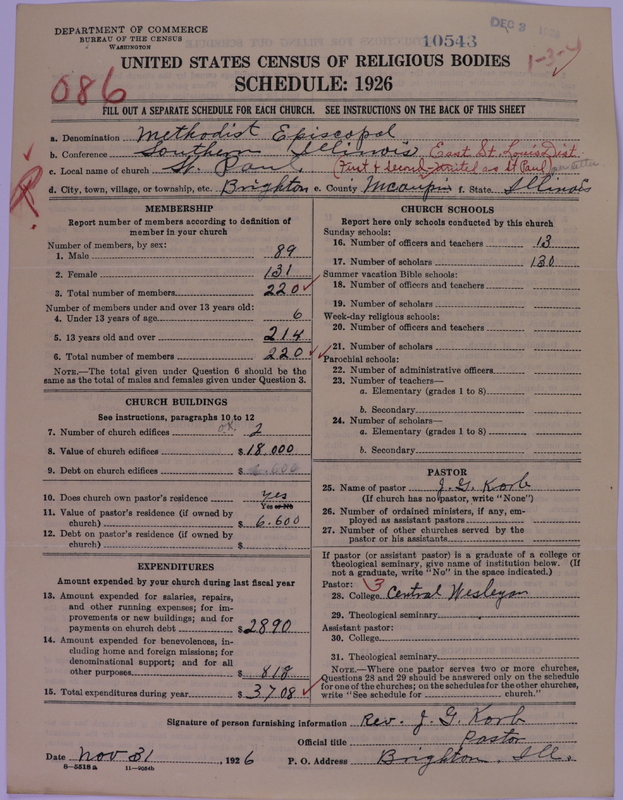 DEPARTMENT OF COMMERCE
BUREAU OF THE CENSUS
WASHINGTON
10543
DEC 3
1-3-4
UNITED STATES CENSUS OF RELIGIOUS BODIES
SCHEDULE: 1926
086
FILL OUT A SEPARATE SCHEDULE FOR EACH CHURCH. SEE INSTRUCTIONS ON THE BACK OF THIS SHEET
a. Denomination Methodist Episcopal
b. Conference Southern Illinois East St. Louis Dist.
c. Local name of church St. Paul (First & Second united as St Paul
d. City, town, village, or township, etc. Brighton e. County Mcaupin f. State Illinois
MEMBERSHIP
Report number of members according to definition of
member in your church
Number of members, by sex:
1. Male 89
2. Female 131
3. Total number of members 220
Number of members under and over 13 years old:
4. Under 13 years of age 6
5. 13 years old and over 214
6. Total number of members 220
NOTE.—The total given under Question 6 should be
same as the total of males and females given under Question 3.
CHURCH BUILDINGS
See instructions, paragraphs 10 to 12
7. Number of church edifices O.K. 2
8. Value of church edifices $18.000
9. Debt on church edifices $
10. Does church own pastor's residence yes
Yes or No
11. Value of pastor's residence (if owned by
church) $6.600
12. Debt on pastor's residence (if owned by
church) $
EXPENDITURES
Amount expended by your church during last fiscal year
13. Amount expended for salaries, repairs,
and other running expenses; for im-
provements or new buildings; and for
payments on church debt $2890
14. Amount expended for benevolences, in-
cluding home and foreign missions; for
denominational support; and for all
other purposes $818
15. Total expenditures during year $3,708
CHURCH SCHOOLS
Report here only schools conducted by this church
Sunday schools:
16. Number of officers and teachers 13
17. Number of scholars 130
Summer vacation Bible schools:
18. Number of officers and teachers
19. Number of scholars
Week-day religious schools:
20. Number of officers and teachers
21. Number of scholars
Parochial schools:
22. Number of administrative officers
23. Number of teachers—
a. Elementary (grades 1 to 8)
b. Secondary
24. Number of scholars—
a. Elementary (grades 1 to 8)
b. Secondary
PASTOR
25. Name of pastor J. G. Korb
(If church has no pastor, write "None")
26. Number of ordained ministers, if any, em-
ployed as assistant pastors
27. Number of other churches served by the
pastor or his assistants
If pastor (or assistant pastor) is a graduate of a college or
theological seminary, give name of institution below. (If
not a graduate, write "No" in the space indicated.)
Pastor: 3
28. College Central Wesleyan
29. Theological seminary
Assistant pastor:
30. College
31. Theological seminary
NOTE.—Where one pastor serves two or more churches,
Questions 28 and 29 should be answered only on the schedule
for one of the churches; on the schedules for the other churches,
write "See schedule for church."
Signature of person furnishing information Rev. J. G. Korb
Official title Pastor
Date Nov 31, 1926 P. O. Address Brighton, Ill.
8-5518a 11-9054b